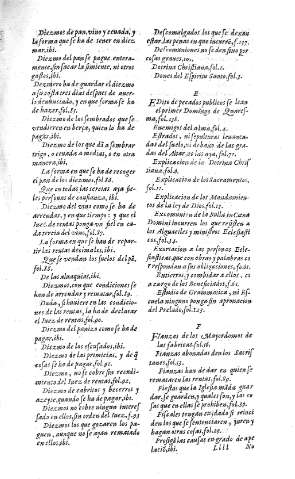 Diezmos de pan, vino y ceuada, y
la forma que se ha de tener en diez
mar, ibi.
Diezmo del pan se pague entera-
mente, sin sacar la simiente, ni otros
gastos, ibi.
Dezmero ha de guardar el diezmo
a su costa tres dias despues de auer-
le denunciado, y en que forma se ha
de hazer. fol.85.
Diezmo de los sembrados que se
vendieren en berça, quien lo ha de
pagar, ibi.
Diezmo de los que dã a sembrar
trigo, o ceuada a medias, a en otra
manera, ibi.
La forma en que se ha de recoger
el pan de los diezmos. fol.88.
Que en todas las tercias aya fie-
les personas de confiança, ibi.
Diezmo del vino como se ha de
arrendar, y en que tiempo: y que el
Iuez de rentas ponga vn fiel en ca-
da tercia del vino, fol.87.
La forma en que se han de repar-
tir los rentas decimales, ibi.
Que se vendan los suelos del pã,
fol.88.
De las almaguias, ibi.
Diezmos, con que condiciones se
han de arrendar y rematar. fol.89.
Duda, si huuiere en las condicio-
nes de las rentas, la ha de declarar
el Iuez de rentas. fol.90.
Diezmo del panizo como se ha de
pagar, ibi.
Diezmo de los escusados, ibi.
Diezmo de las primicias, y de q̃
cosas se ha de pagar. fol.92
Diezmo, no se cobre sin recudi-
miento del Iuez de rentas. fol.92.
Diezmo de cabritos y bezeros, y
azeyte, quando se ha de pagar, ibi.
Diezmos no cobre ningun interes-
sado en ellos, sin orden del Iuez. f.93
Diezmos los que gozaren los pa-
guen, aunque no se ayan rematado
en ellos, ibi.
Desomulgados los que se dexan
estar, las penas en que incurrẽ. f.133.
Descomuniones no se den si no por
cosas graues, 101.
Dotrina Christiana. fol.2.
Dones del Espiritu Santo. fol.3.
E
Edito de pecados publicos se lea
el primer Domingo de Quares-
ma. fol.128.
Enemigos del alma. fol.2.
Estrados, ni sepulturas leuanta-
das del suelo, ni debajo de las gra-
das del Altar, no las aya. fol.71.
Explicacion de la Dotrina Chris-
tiana. fol.4.
Explicacion de los Sacramentos,
fol.11.
Explicacion de los Mandamien-
tos de la ley de Dios. fol.15.
Excomunion de la Bulla in Cæna
Domini incurren los que resisten a
los Alguaziles y ministros Eclesiasti-
cos. fol.34.
Exortacion a las personas Ecle-
siasticas, que con obras y palabras co
rrespondan a sus obligaciones, fol.81.
a cargo de los Beneficiados. fol.81.
Estudio de Grammatica, ni Es-
cuela ninguno ponga sin aprouacion
del Prelado. fol.125.
F
Fianzas de los Mayordomos de
las fabricas. fol.58.
Fianzas abonadas den los Sacris-
tanes. fol.53.
Fianzas han de dar en quien se
remataren las rentas. fol.87.
Fiestas que la Iglesia mãda guar
dar, se guarden, y quales son, y las co
sas que en ellas se prohiben. fol.39.
Fiscales tengan cuydado si reinci
den los que se sentenciaren, y veren y
hagan otras cosas. fol.89.
Prosiga las causas en grado de ape
lació, ibi.
Llll No